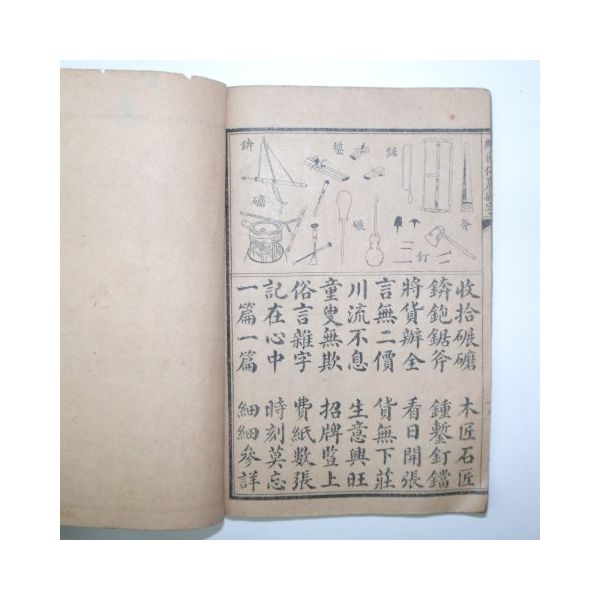 鋸
鏨
錛
斧
釘
碾
礳
收拾碾礳 木匠石匠
錛鉋鋸斧 鍾鏨釘鐺
將貨辦全 看日開張
言無二價 貨無下莊
川流不息 生意興旺
童叟無欺 招牌豎上
俗言雜字 費紙數張
記在心中 時刻莫忘
一篇一篇 細細參詳